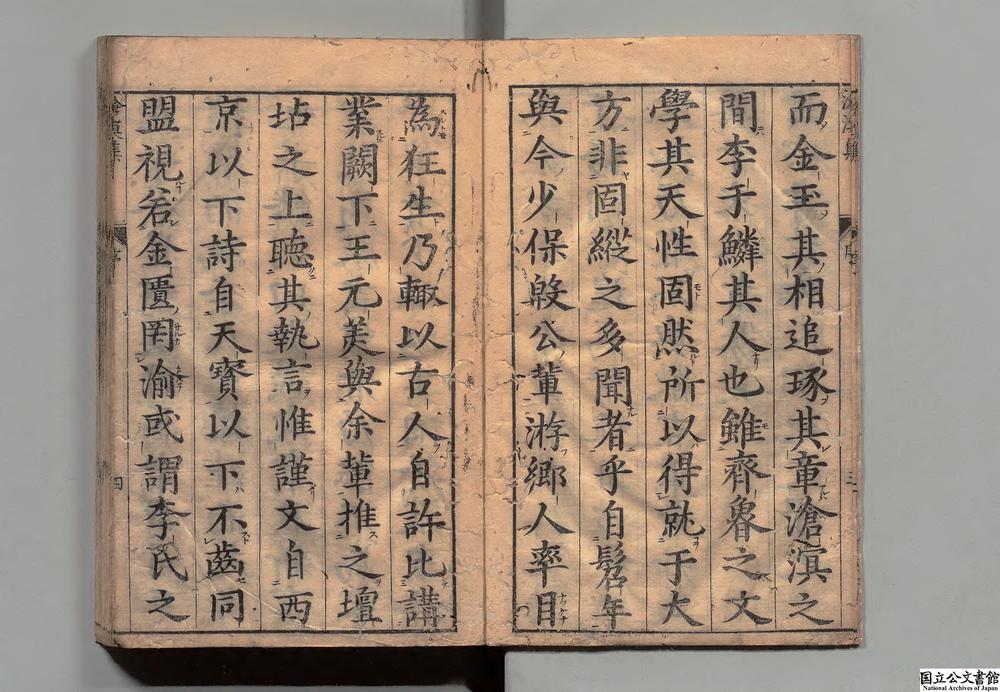 而金玉其相追琢其章滄溟之
間李于鱗其人也雖齊魯之文
學其天性固然所以得就于大
方非固縱之多聞者乎自髫年
與今少保殷公軰游鄉人率目
為狂生乃輙以古人自許比講
業闕下王元美與余軰推之壇
坫之上聽其執言惟謹文自西
京以下詩自天寶以下不齒同
盟視若金匱罔渝或謂李氏之
序
三
四
国立公文書館
National Archives of Japan